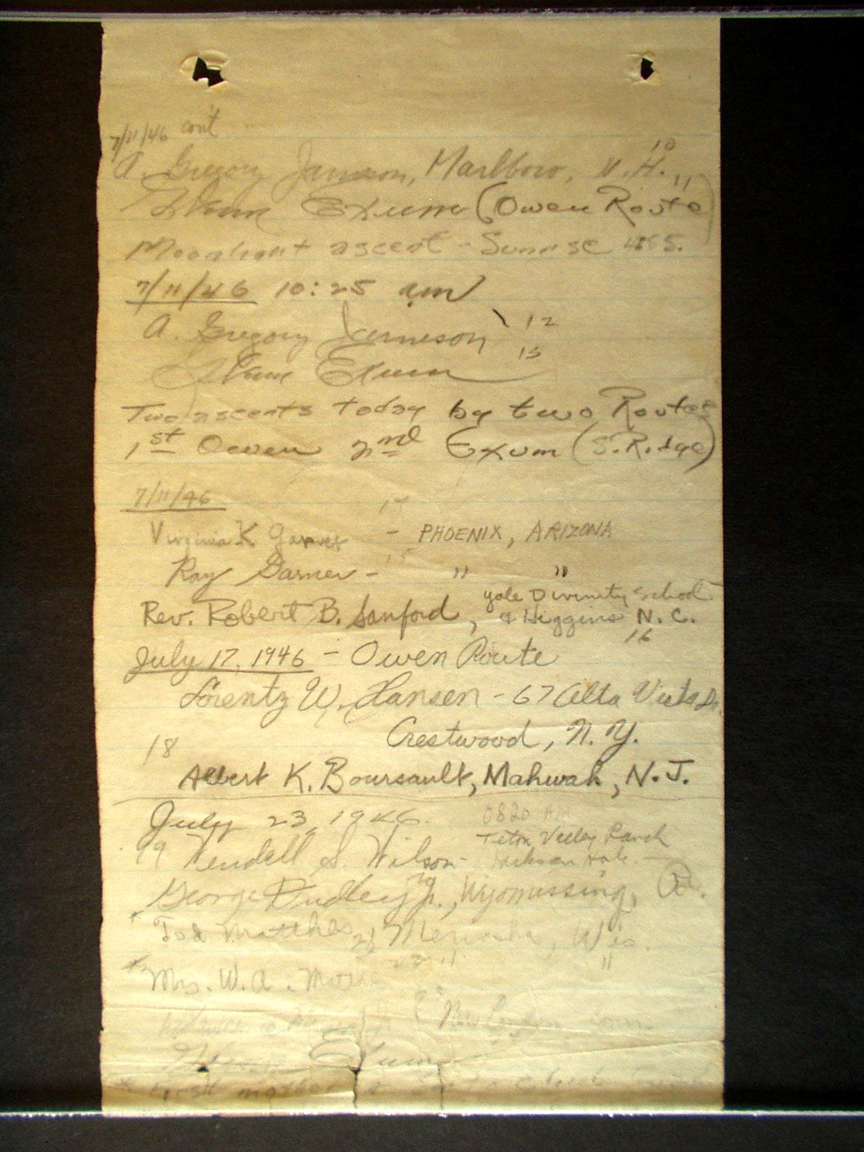 7/11/46 con't
10
A. Gregory Jameson, Marlboro, N.H.
11
Glenn Exum (Owen Route)
Moonlight ascent - Sunrise 455.
7/11/46 10:25 am
A. Gregory Jameson 12
Glenn Exum 13
Two ascents today by two Routes
1st Owen 2nd Exum (S. Ridge)
7/11/46
14
Virginia K Garner - PHOENIX, ARIZONA
Ray Garner - 15 " "
Yale Divinity School
Rev. Robert B. Sanford, & Higgins N.C.
16
July 17, 1946 - Owen Route
Lorentz W. Hansen - 67 Alta Vista Dr.
Crestwood, N.Y.
18
Albert K. Boursault, Mahwah, N.J.
July 23, 1946. 0820 AM
Teton Valley Ranch
19 Wendell S. Wilson - Jackson Hole -
George Dudley Jr., 20 Wyomissing, Pa.
* Ted Matthes 21 Menasha, Wis.
* Mrs. W.A. 22 " "
New London Conn.
Glenn Exum
* First mother &